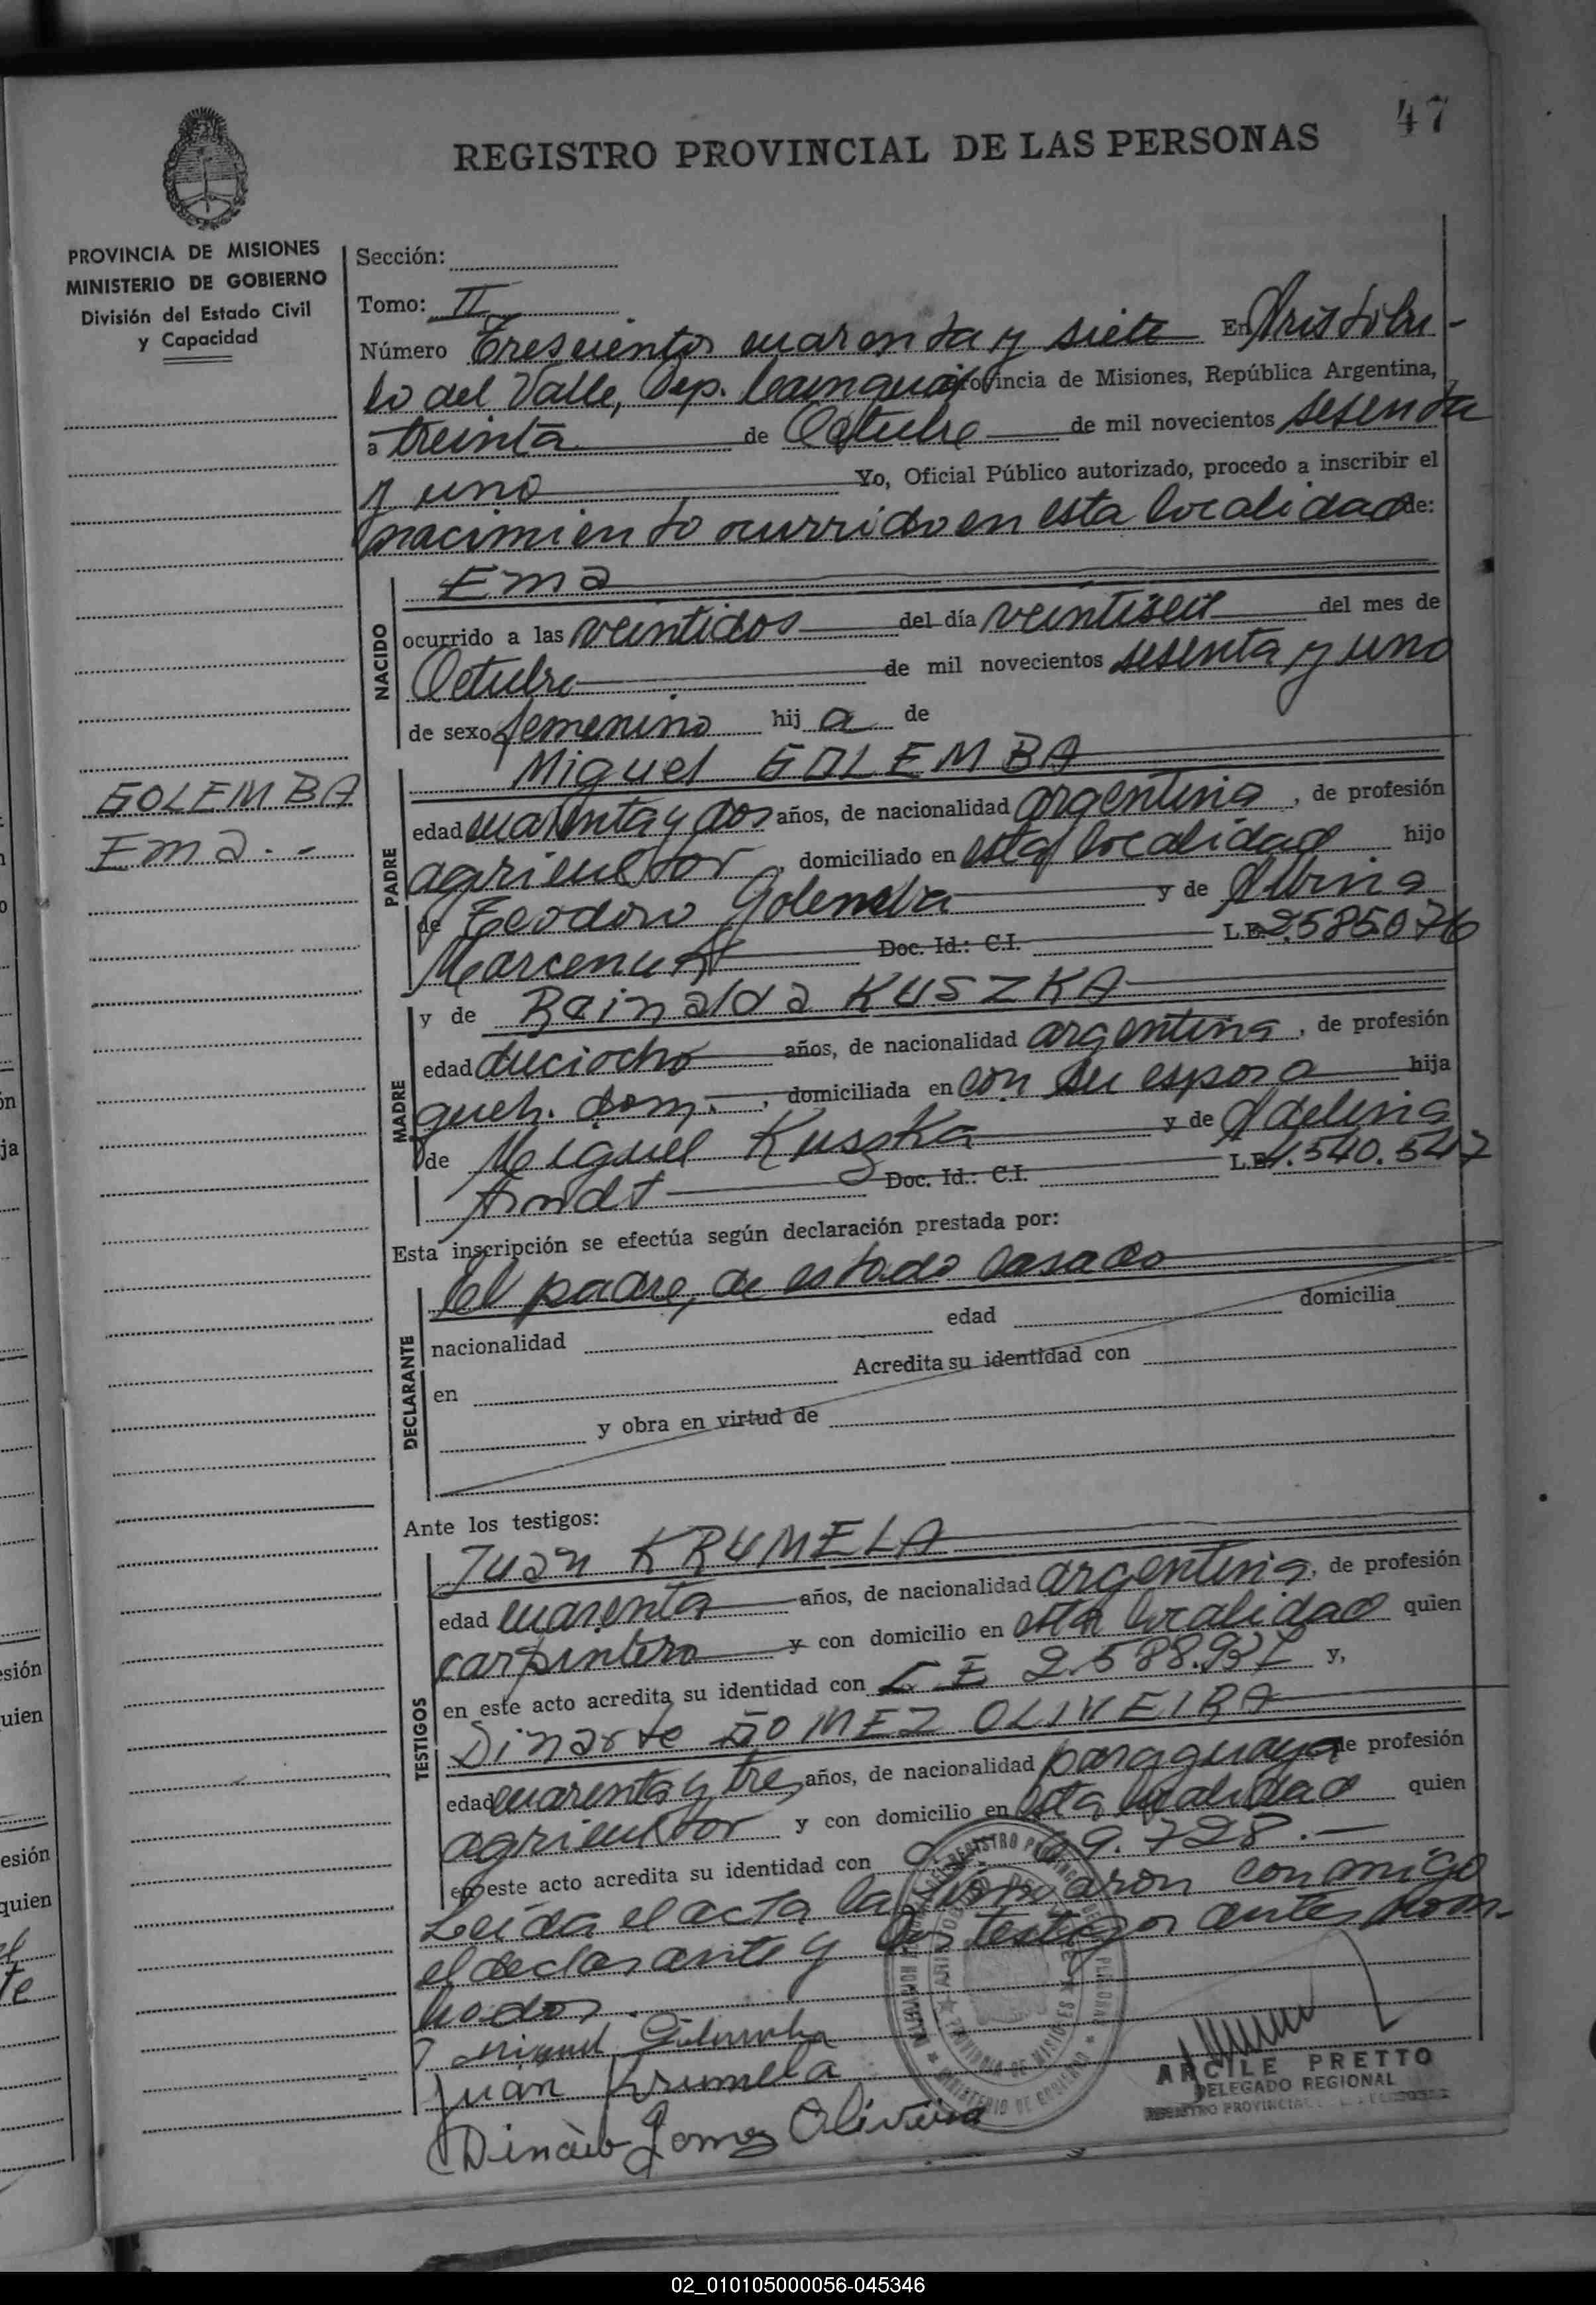 47
REGISTRO PROVINCIAL DE LAS PERSONAS
PROVINCIA DE MISIONES
MINISTERIO DE GOBIERNO
División del Estado Civil
y Capacidad
GOLEMBA
Ema.-
Sección:
Tomo: II
Número Trescientos cuarenta y siete En Aristóbu-
lo del Valle, Dep. Cainguás Provincia de Misiones, República Argentina,
a treinta de Octubre de mil novecientos sesenta
y uno Yo, Oficial Público autorizado, procedo a inscribir el
nacimiento ocurrido en esta localidad de:
NACIDO
Ema
ocurrido a las veintidos del día veintiseis del mes de
Octubre de mil novecientos sesenta y uno
de sexo femenino hij a de
PADRE
Miguel GOLEMBA
edad cuarenta y dos años, de nacionalidad argentina, de profesión
agricultor, domiciliado en esta localidad hijo
de Teodoro Golemba y de Albina
Doc. Id.: C.I. L.E. 2585076
MADRE
y de Rainalda KUSZKA
edad dieciocho años, de nacionalidad argentina, de profesión
queh. dom., domiciliada en con su esposo hija
de Miguel Kuszka y de Adelina
Arndt Doc. Id.: C.I. L.E. 4.540.547
Esta inscripción se efectúa según declaración prestada por:
DECLARANTE
El padre, de estado casado
nacionalidad edad domicilia
en Acredita su identidad con
y obra en virtud de
Ante los testigos:
TESTIGOS
Juan KRUMELA
edad cuarenta años, de nacionalidad argentina, de profesión
carpintero y con domicilio en esta localidad quien
en este acto acredita su identidad con L E 2.588.937 y,
Dinarte GOMEZ OLIVEIRA
edad cuarenta y tres años, de nacionalidad paraguaya de profesión
agricultor y con domicilio en esta localidad quien
en este acto acredita su identidad con 69.728.-
Leída el acta la firmaron conmigo
el declarante y los testigos antes nom-
brados.
Miguel Golemba
Juan Krumela
Dinarte Gomez Oliveira
ARCILE PRETTO
DELEGADO REGIONAL
REGISTRO PROVINCIAL
02_010105000056-045346